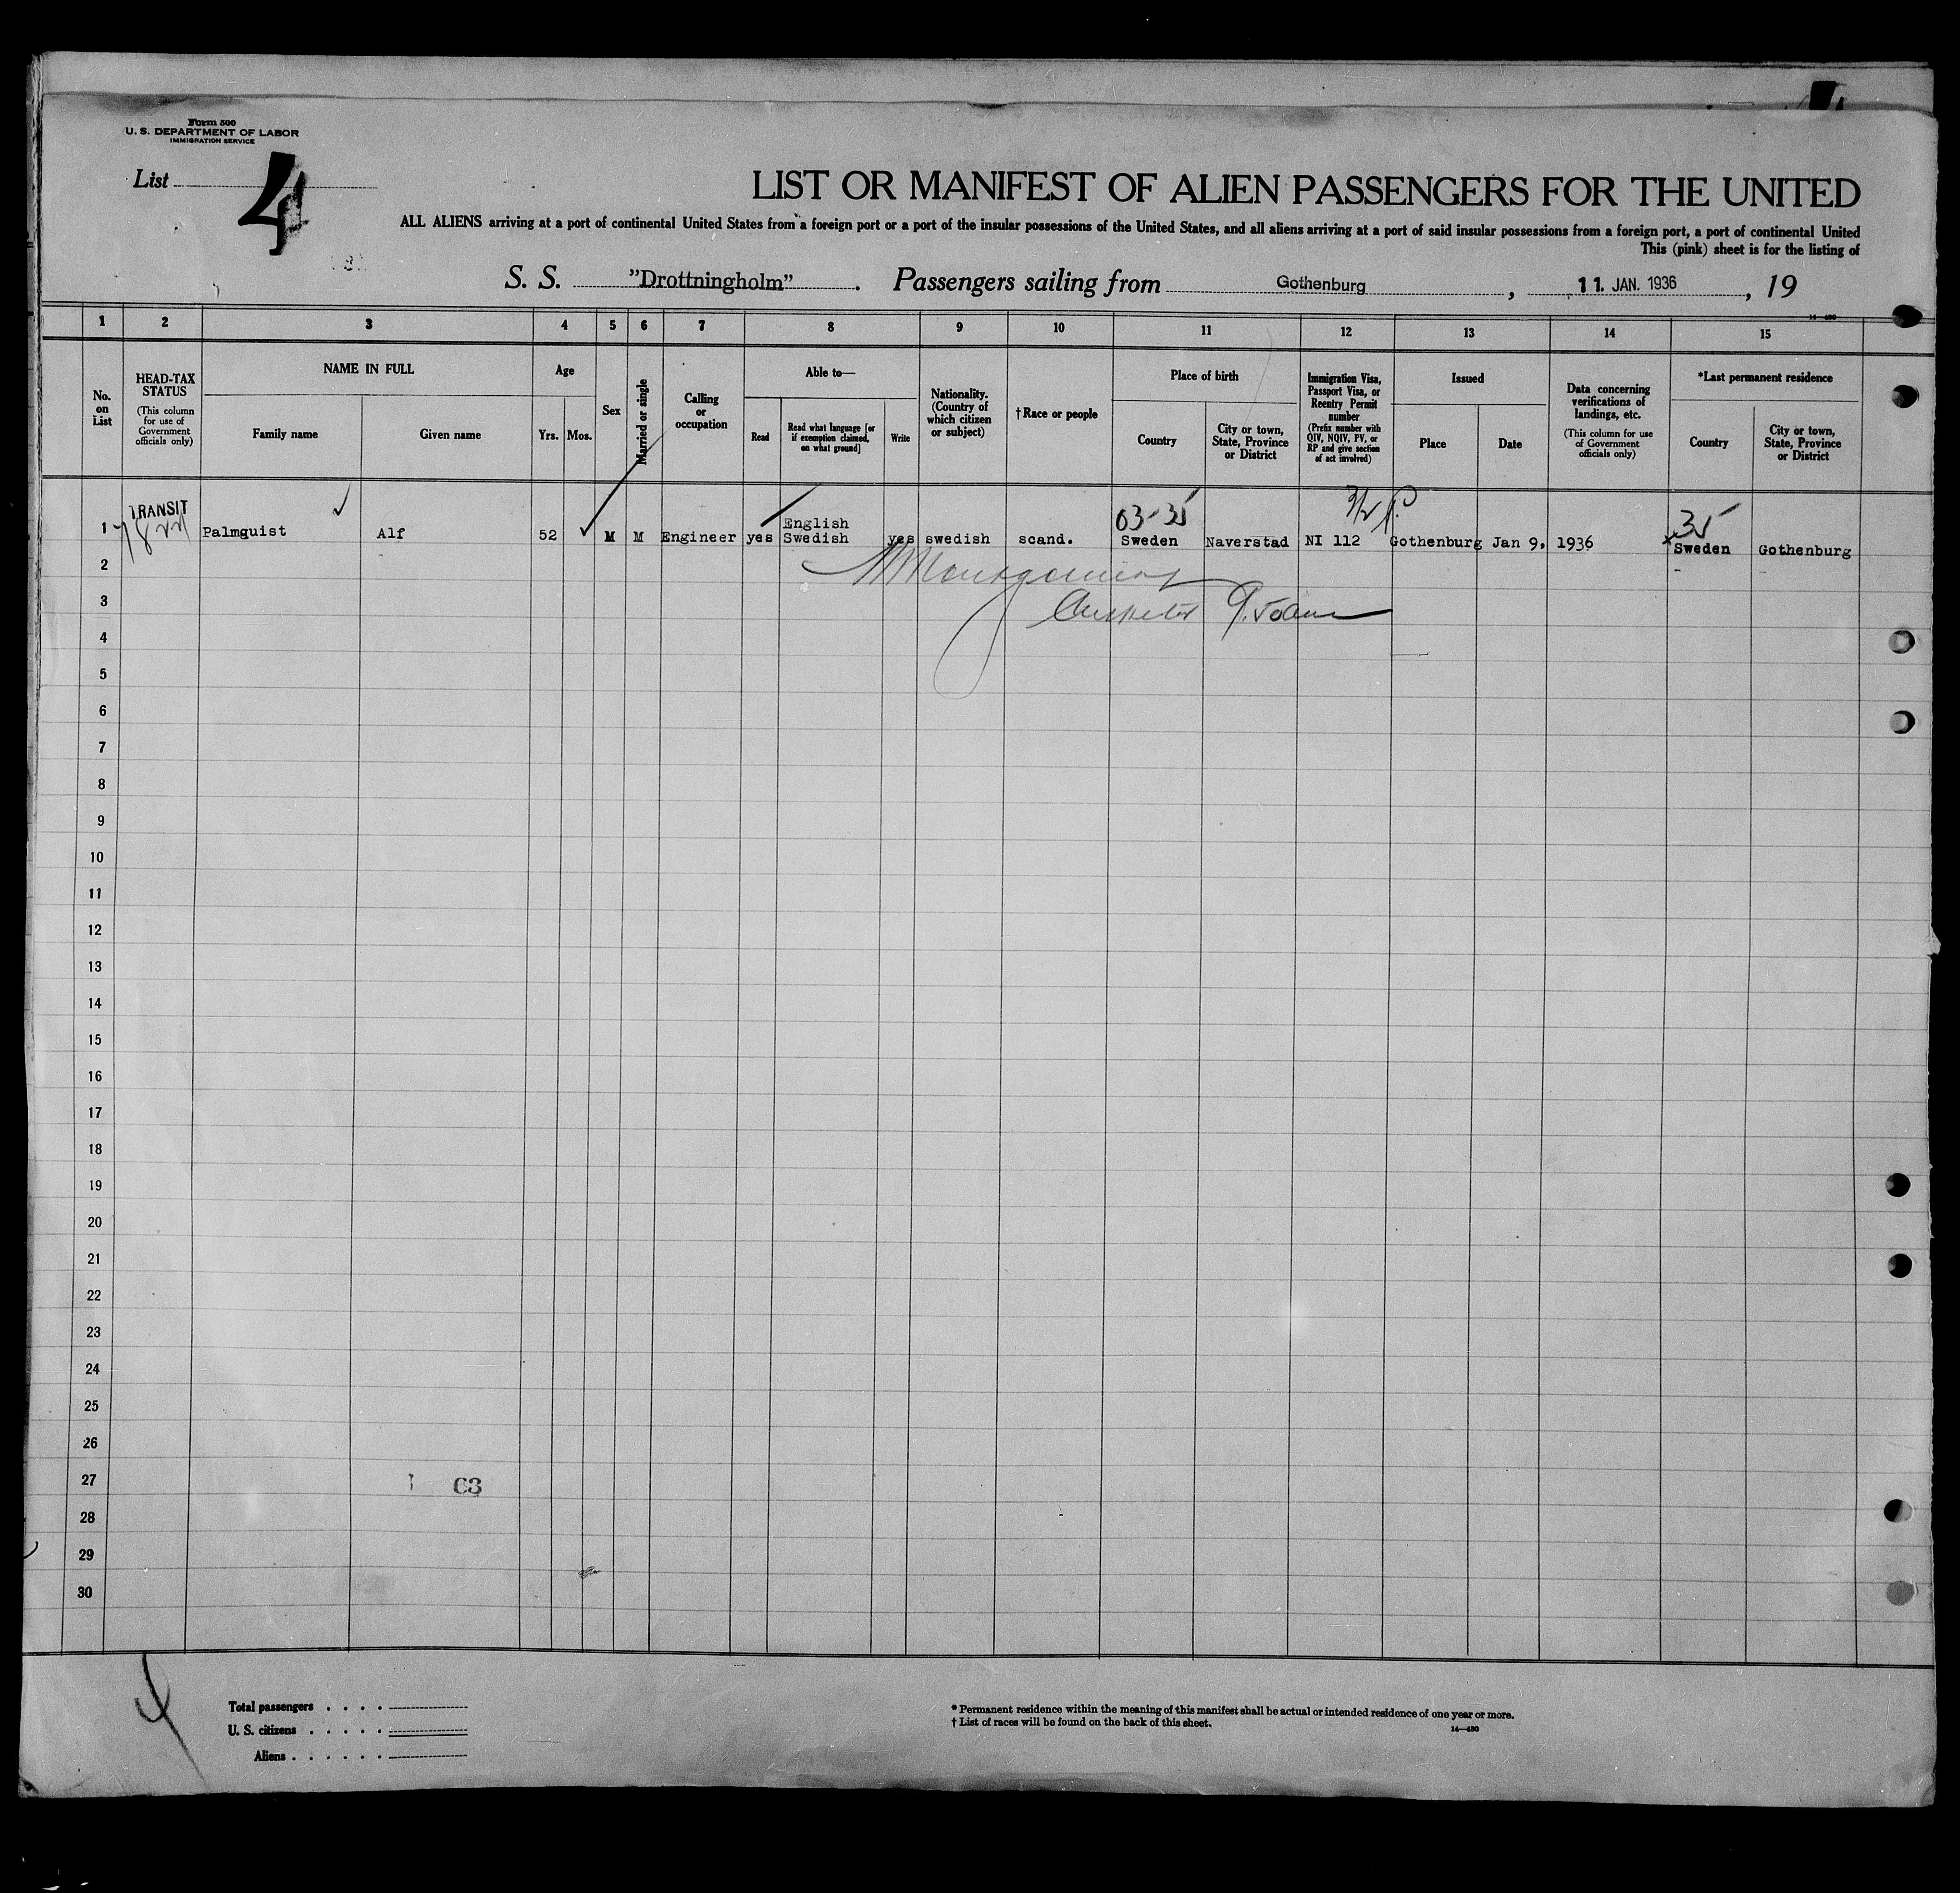 Form 500
U. S. DEPARTMENT OF LABOR
IMMIGRATION SERVICE
List 4
LIST OR MANIFEST OF ALIEN PASSENGERS FOR THE UNITED
ALL ALIENS arriving at a port of continental United States from a foreign port or a port of the insular possessions of the United States, and all aliens arriving at a port of said insular possessions from a foreign port, a port of continental United
This (pink) sheet is for the listing of
S. S. "Drottningholm". Passengers sailing from Gothenburg, 11. JAN. 1936, 19
14—430
1 2 3 4 5 6 7 8 9 10 11 12 13 14 15
No. on List
HEAD-TAX STATUS
(This column for use of Government officials only)
NAME IN FULL
Family name
Given name
Age
Yrs.
Mos.
Sex
Married or single
Calling or occupation
Able to—
Read
Read what language [or if exemption claimed, on what ground]
Write
Nationality. (Country of which citizen or subject)
†Race or people
Place of birth
Country
City or town, State, Province or District
Immigration Visa, Passport Visa, or Reentry Permit number
(Prefix number with QIV, NQIV, PV, or RP and give section of act involved)
Issued
Place
Date
Data concerning verifications of landings, etc.
(This column for use of Government officials only)
*Last permanent residence
Country
City or town, State, Province or District
TRANSIT
03-35
35
1 Palmquist Alf 52 M M Engineer yes English Swedish yes swedish scand. Sweden Naverstad NI 112 Gothenburg Jan 9, 1936 Sweden Gothenburg
2 Montgomery
3
4
5
6
7
8
9
10
11
12
13
14
15
16
17
18
19
20
21
22
23
24
25
26
27
63
28
29
30
4
Total passengers
U. S. citizens
Aliens
* Permanent residence within the meaning of this manifest shall be actual or intended residence of one year or more.
† List of races will be found on the back of this sheet.
14—430